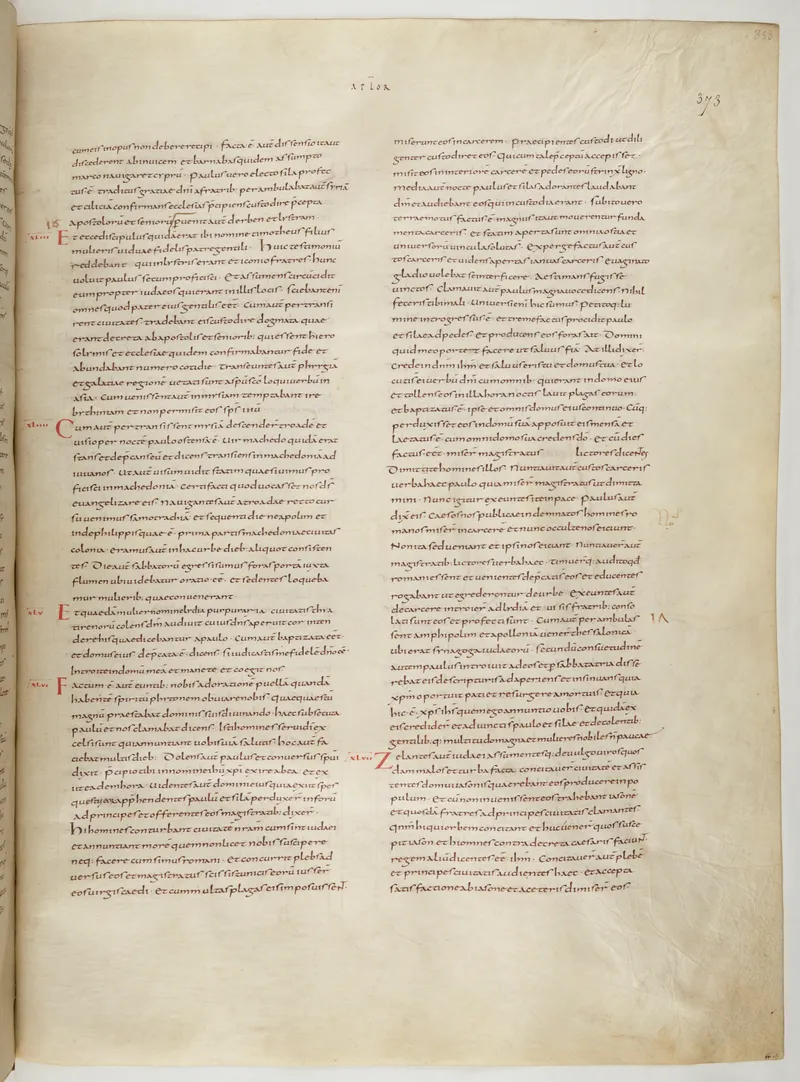 ACTUUM
373
cum eis in opus non debere recipi · facta ē aut dissensio ita ut
discederent ab inuicem et barnabas quidem assumpto
marco nauigaret cyprū · paulus uero electo sila profec
tus ē traditus gratiae dni a fratrib: perambulabat aut syriā
et ciliciā confirmans ecclesias praecipiens custodire pcepta
apostolorū et seniorū peruenit aut derben et lystram
xliii E t ecce discipulus quidā erat ibi nomine timotheus filius
mulieris uiduae fidelis patre gentili · huic testimoniū
reddebant qui in lystris erant et iconio fratres hunc
uoluit paulus secum proficisci · et assumens circūcidit
eum propter iudaeos qui erant in illis locis · sciebant enī
omnes quod pater eius gentilis eēt · Cum aut pertransi
rent ciuitates tradebant eis custodire dogmata quae
erant decreta ab apostolis et seniorib: qui essent hiero
solymis et ecclesiae quidem confirmabantur fide et
abundabant numero cotidie · transeuntes aut phrygiā
et galatiae regionē uetati sunt a spu sco loqui uerbū in
asia · Cum uenissent aut in mysiam temptabant ire
bithiniam et non permisit eos sps ihū
xliiii C um aut pertransissent mysiā descenderunt troade et
uisio per noctē paulo ostensa ē · Uir machedo quidā erat
stans et depcans eū et dicens transiens in machedoniā ad
iuua nos · Ut aut uisum uidit statim quaesiuimus pro
ficisci in machedoniā · certi facti quod uocasset nos ds
euangelizare eis · Nauigantes aut a troade recto cur
su uenimus samothrachiā et sequenti die neapolim et
inde philippis quae ē prima partis machedoniae ciuitas
colonia · eramus aut in hac urbe dieb: aliquot consisten
tes · Die aut sabbatorū egressi sumus foras porta iuxta
flumen ubi uidebatur oratio eē · et sedentes loqueba
mur mulierib: quae conuenerant
xlv E t quaedā mulier nomine lydia purpuraria ciuitatis thya
tirenorū colens dm audiuit cuius dns aperuit cor inten
dere his quae dicebantur a paulo · Cum aut baptizata eēt
et domus eius depcata ē dicens si iudicastis me fidelē dno eē
Introite in domū meā et manete et coegit nos
xlvi F actum ē aut euntib: nobis ad orationē puellā quandā
habentē spiritū phytonem obuiare nobis quae quaestū
magnū praestabat dominis suis diuinando · haec subsecuta
paulū et nos clamabat dicens · Isti homines serui di ex
celsi sunt qui annuntiant uobis uiā salutis · hoc aut fa
ciebat multis dieb: · Dolens aut paulus et conuersus spui
dixit · pcipio tibi in nomine ihu xpi exire ab ea · et ex
iit eadem hora · Uidentes aut domini eius quia exiit spes
quaestus eorū apphendentes paulū et silā perduxer in forū
ad principes et offerentes eos magistratib: dixer ·
hi homines conturbant ciuitatē nram cum sint iudaei
et annuntiant morē quem non licet nobis suscipere
neq: facere cum simus romani · et concurrit plebs ad
uersus eos et magistratus scissis tunicis eorū iusser
eos uirgis caedi · et cum multas plagas eis imposuissent
miserunt eos in carcerem · praecipientes custodi ut dili
genter custodiret eos · Qui cum tale pceptū accepisset
misit eos in interiorē carcerē et pedes eorū strinxit ligno ·
media aut nocte paulus et silas adorantes laudabant
dm et audiebant eos qui in custodia erant · Subito uero
terraemotus factus ē magnus ita ut mouerentur funda
menta carceris · et statim aperta sunt omnia ostia et
uniuersorū uincula soluta sunt · expergefactus aut cus
tos carceris et uidens apertas ianuas carceris euaginato
gladio uolebat se interficere · aestimans fugisse
uinctos · clamauit aut paulus magna uoce dicens · Nihil
feceris tibi mali · Uniuersi enī hic sumus · petitoq: lu
mine introgressus ē · et tremefactus procidit paulo
et silae ad pedes · et producens eos foras ait · Domini
quid me oportet facere ut saluus fiā · At illi dixer
Crede in dnm ihm et saluus eris tu et domus tua · et lo
cuti sunt ei uerbū dni cum omnib: qui erant in domo eius
et tollens eos in illa hora noctis lauit plagas eorum ·
et baptizatus ē ipse et omnis domus eius continuo · Cūq:
perduxisset eos in domū suā apposuit eis mensā et
laetatus ē cum omni domo sua credens do · et cū dies
factus eēt miser magistratus lictores dicentes
Dimitte homines illos · Nuntiauit aut custos carceris
uerba haec paulo quia miser magistratus ut dimitta
mini · Nunc igitur exeuntes ite in pace · paulus aut
dixit eis · Caesos nos publice indemnatos homines ro
manos miser in carcerē et nunc occulte nos eiciunt ·
Non ita sed ueniant et ipsi nos eiciant · Nuntiauer aut
magistratib: lictores uerba haec · timuerq: audito qd
romani essent et uenientes depcati sunt eos et educentes
rogabant ut egrederentur de urbe · exeuntes aut
de carcere introier ad lydiā et uisis fratrib: conso
lati sunt eos et profecti sunt · Cum aut perambulas
sent amphipolim et apolloniā uener thessalonica
ubi erat synagoga iudaeorū · secundū consuetudinē
aut em paulus introiuit ad eos et p sabbata tria disse
rebat eis de scripturis adaperiens et insinuans quia
xpm oportuit pati et resurgere a mortuis · et quia
hic ē xps ihs quem ego annuntio uobis · et quidā ex
eis credider et adiuncti s paulo et silae et de colentib:
gentilib:q: multitudo magna et mulieres nobiles n paucae
xlvii Z elantes aut iudaei assumentesq: de uulgo uiros quos
dam malos et turba facta concitauer ciuitatē et assis
tentes domui iasonis quaerebant eos producere in po
pulum · et cū non inuenissent eos trahebant iasonē
et quosdā fratres ad principes ciuitatis clamantes
qnm hi qui urbem concitant et huc uener quos susce
pit iason et hi omnes contra decreta caesaris faciunt
regem aliū dicentes eē ihm · Concitauer aut plebē
et principes ciuitatis audientes haec · et accepta
satisfactione ab iasone et a ceteris dimiser eos